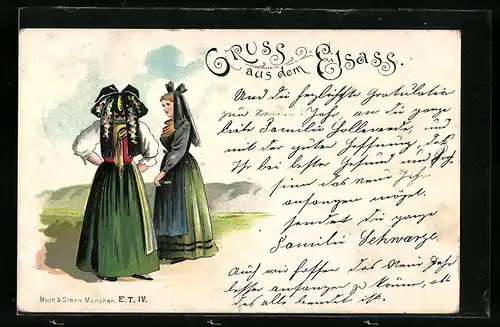 GRUSS
aus dem Elsass.
Und die herzlichste Gratulation
zum neuen Jahr an die ganze
Familie und
mit der guten Hoffnung, daß
Ihr bei bester Gesund und
das neue Jahr
anfangen möget.
sendet die ganze
Familie Schwarze.
Auch wir hoffen das Neue Jahr
besser anfangen zu können, als
das alte beendet ist.
Moch & Stern München. E. T. IV.